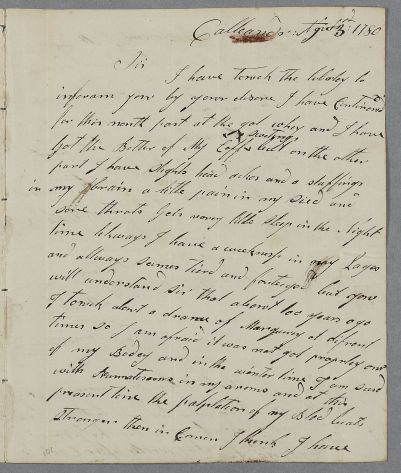 Sir
I have touch the liberty to
inforam you by your disire I have Continued
for this month past at the got whey and I have
Got the Better of My Coffe
spiting
but on the other
part I have Slight head aches and a stuffings
in my Brain a little pain in my Sied and
sore throts Gets verry little Sleep in the Night
time likways I have a weekness in my Lages
and allways semes tierd and fantegue but you
will understand Sir that about two years ago
I touck about a drame of Marquery at diferent
times so I am afraid it was not got properly out
of my Bodey and in the winter time I am
with Rumatisoms in my aroms and at this
present time the palpletation of my Blod beats
Stronger then in Comen I think I have